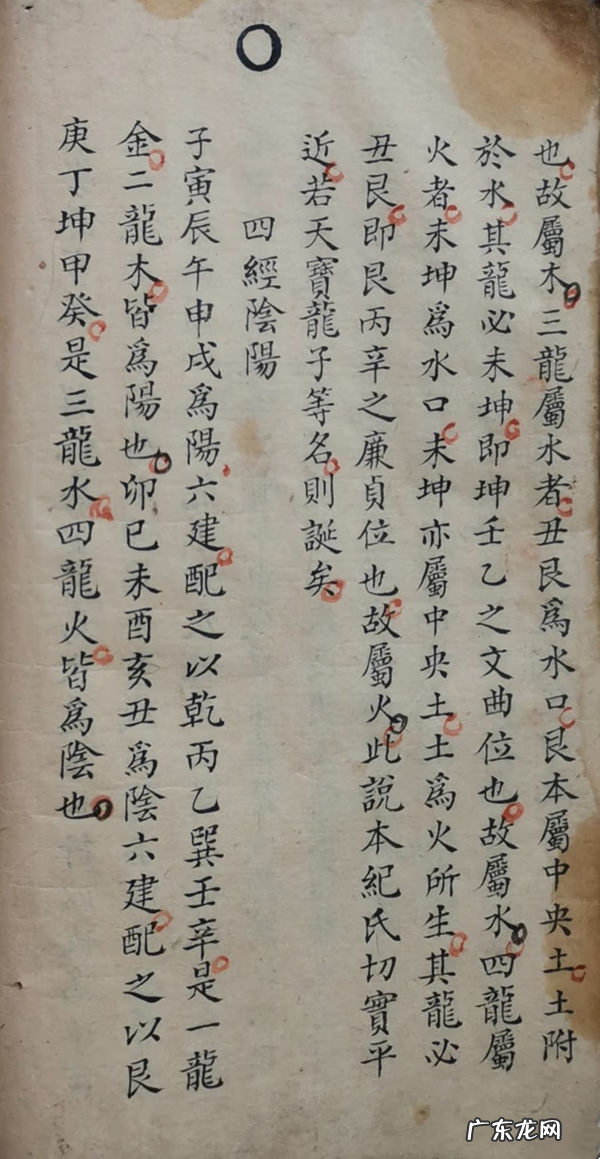 也故屬木三龍屬水者丑艮為水口艮本屬中央土土附
於水其龍必未坤即坤壬乙之文曲位也故屬水四龍屬
火者未坤為水口未坤亦屬中央土土為火所生其龍必
丑艮即艮丙辛之廉貞位也故屬火此說本紀氏切實平
近若天寶龍子等名則誕矣
四經陰陽
子寅辰午申戌為陽六建配之以乾丙乙巽壬辛是一龍
金二龍木皆為陽也卯巳未酉亥丑為陰六建配之以艮
庚丁坤甲癸是三龍水四龍火皆為陰也
广东龙网